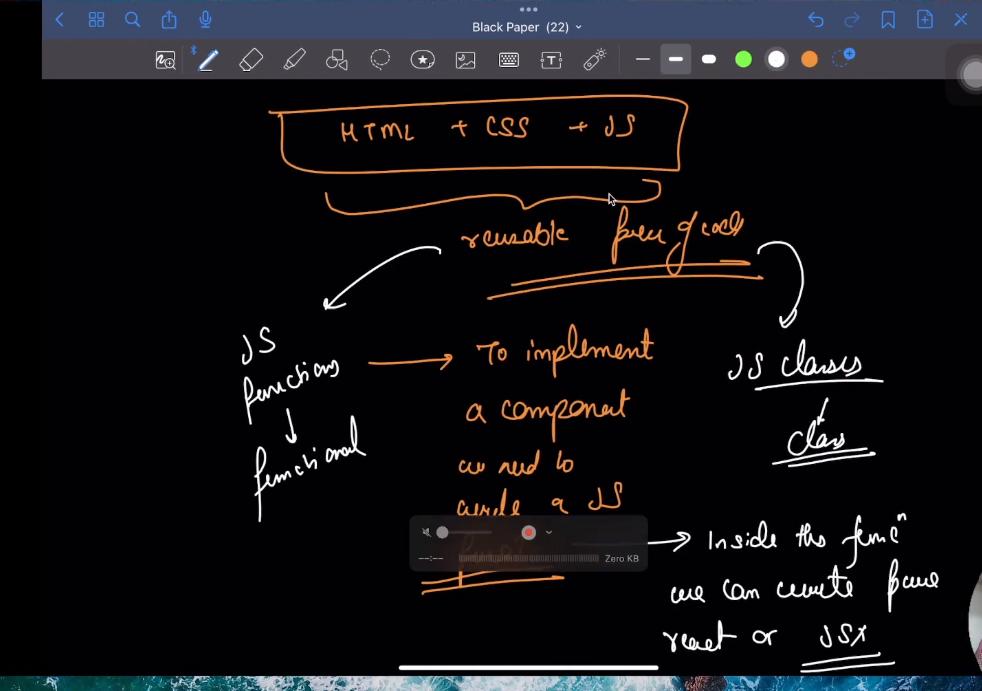 Black Paper (22)
HTML + CSS + JS
reusable piece of code
JS
functions
functional
To implement
a component
we need to
write a JS
JS classes
class
Zero KB
--:--
Inside the funcⁿ
we can write pure
react or JSX